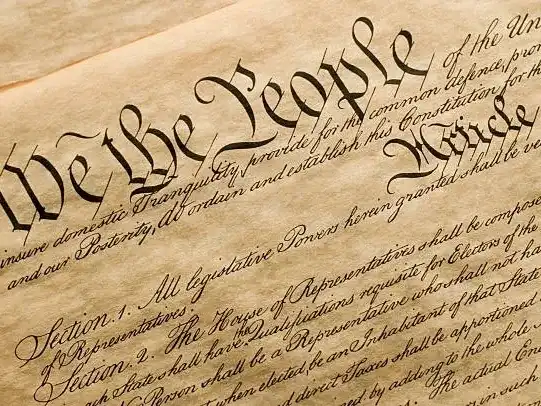 We the People of the Un
insure domestic Tranquility, provide for the common defence, pro
and our Posterity, do ordain and establish this Constitution for th
Article
All legislative Powers herein granted shall be ve
Section. 1.
of Representatives.
Section. 2. The House of Representatives shall be compose
each State shall have the Qualifications requisite for Electors of the
Person shall be a Representative who shall not ha
when elected, be an Inhabitant of that State
and direct Taxes shall be apportioned
by adding to the whole
The actual En
in such